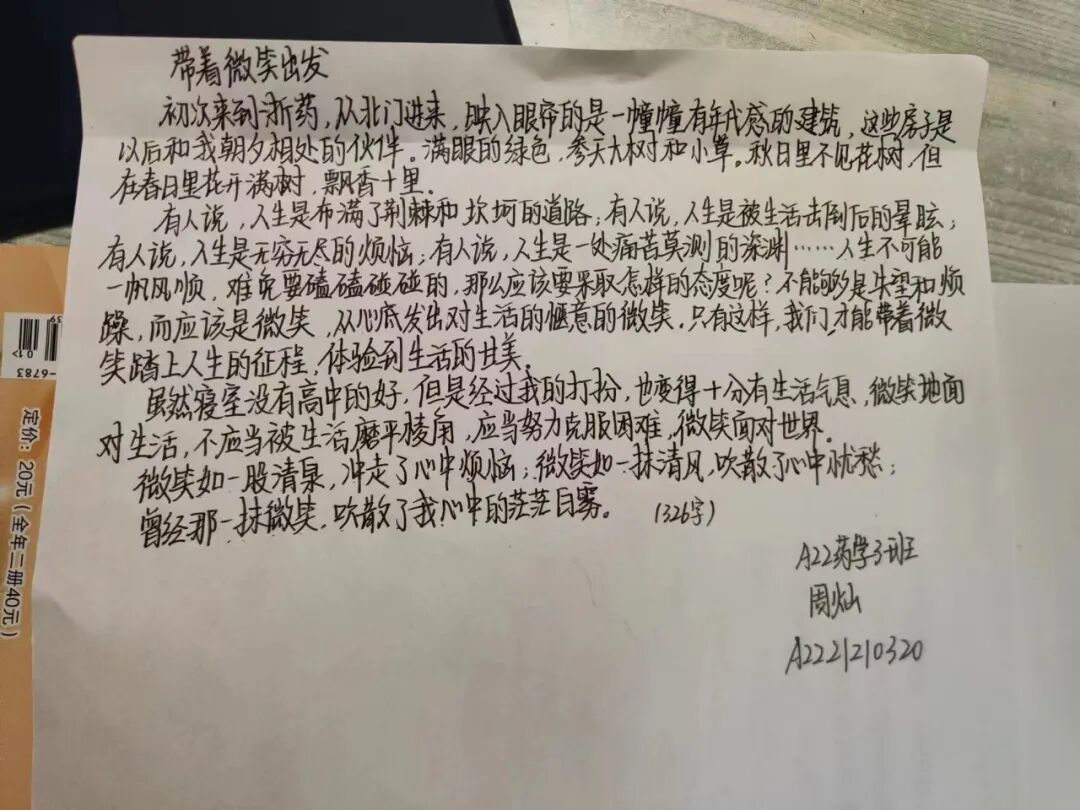 带着微笑出发
初次来到浙药，从北门进来，映入眼帘的是一幢幢有年代感的建筑，这些房子是
以后和我朝夕相处的伙伴。满眼的绿色，参天大树和小草。秋日里不见花树，但
在春日里花开满树，飘香十里。
有人说，人生是布满了荆棘和坎坷的道路；有人说，人生是被生活击倒后的晕眩；
有人说，人生是无穷无尽的烦恼；有人说，人生是一处痛苦莫测的深渊……人生不可能
一帆风顺，难免要磕磕碰碰的，那么应该要采取怎样的态度呢？不能够是失望和烦
躁，而应该是微笑，从心底发出对生活的惬意的微笑。只有这样，我们才能带着微
笑踏上人生的征程，体验到生活的甘美。
虽然寝室没有高中的好，但是经过我的打扮，也变得十分有生活气息，微笑地面
对生活，不应当被生活磨平棱角，应当努力克服困难，微笑面对世界。
微笑如一股清泉，冲走了心中烦恼；微笑如一抹清风，吹散了心中忧愁；
曾经那一抹微笑，吹散了我心中的茫茫白雾。 （326字）
A22药学3班
周灿
A2221210320
-6783
01>
定价：20元（全年二册40元）